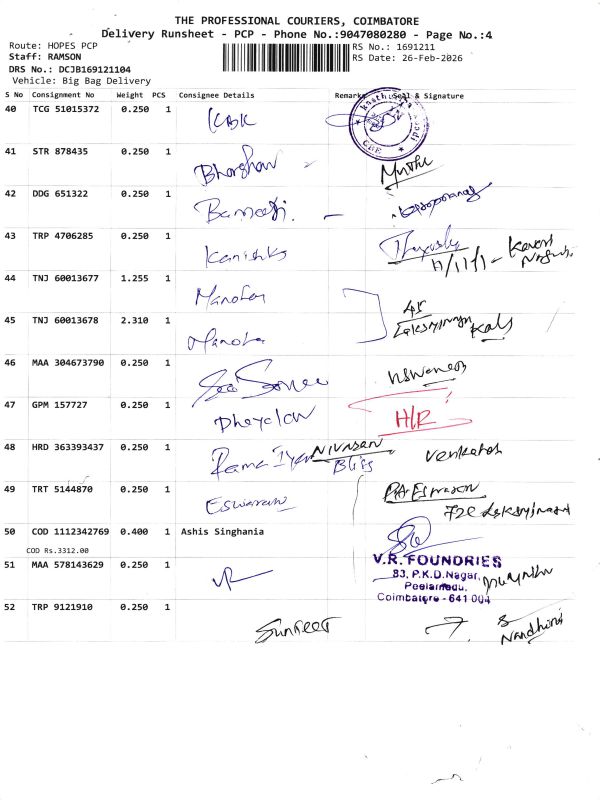 THE PROFESSIONAL COURIERS, COIMBATORE
Delivery Runsheet - PCP - Phone No.:9047080280 - Page No.:4
Route: HOPES PCP
RS No.: 1691211
Staff: RAMSON
RS Date: 26-Feb-2026
DRS No.: DCJB169121104
Vehicle: Big Bag Delivery
S No Consignment No Weight PCS Consignee Details Remarks Seal & Signature
40 TCG 51015372 0.250 1 KBK
41 STR 878435 0.250 1 Muthu
42 DDG 651322 0.250 1
43 TRP 4706285 0.250 1 Kanishks
44 TNJ 60013677 1.255 1 Manohar
45 TNJ 60013678 2.310 1 Manohar
46 MAA 304673790 0.250 1
47 GPM 157727 0.250 1 Dheyalan H/R
48 HRD 363393437 0.250 1 Rama Iyer NIVASAN Venkatesh
Bliss
49 TRT 5144870 0.250 1 Eswaran
50 COD 1112342769 0.400 1 Ashis Singhania
COD Rs.3312.00
51 MAA 578143629 0.250 1 VR
V.R. FOUNDRIES
83, P.K.D.Nagar,
Peelamedu,
Coimbatore - 641 004
52 TRP 9121910 0.250 1 Sunreet S
Nandhini